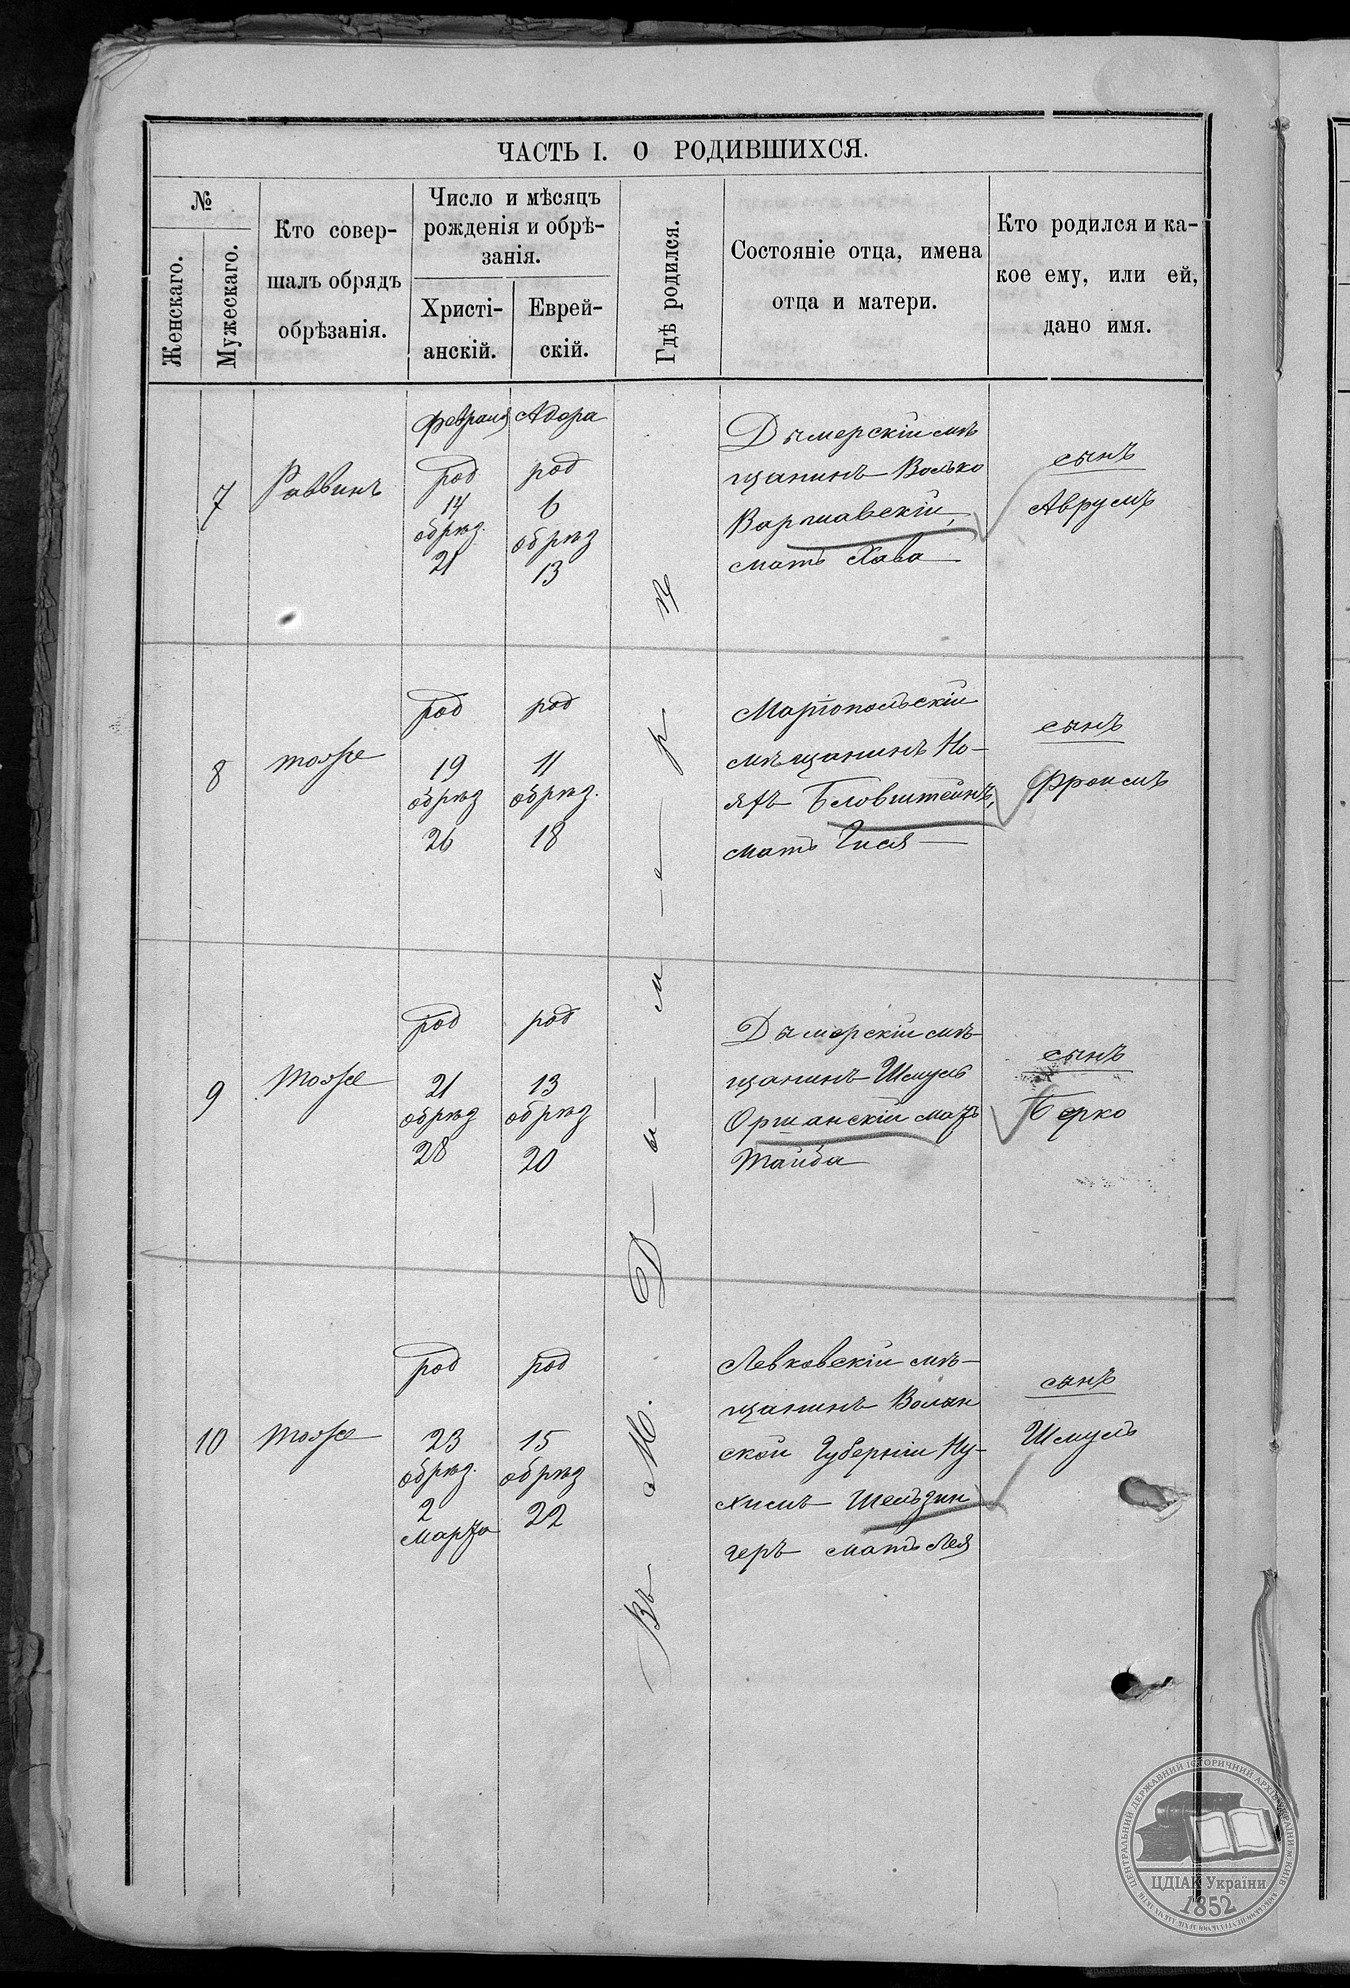 ЧАСТЬ I. О РОДИВШИХСЯ.
№
Женскаго.
Мужескаго.
Кто совер-
шалъ обрядъ
обрѣзанія.
Число и мѣсяцъ
рожденія и обрѣ-
занія.
Христі-
анскій.
Еврей-
скій.
Гдѣ родился.
Состояніе отца, имена
отца и матери.
Кто родился и ка-
кое ему, или ей,
дано имя.
7
Раввинъ
Февраля
род
14
обрѣз.
21
Адора
род
6
обрѣз
13
Въ М. Дымерѣ
Дымерскій мѣ
щанинъ Волько
Варшавскій,
мать Хава
сынъ
Аврумъ
8
тоже
род
19
обрѣз
26
род
11
обрѣз.
18
Маріопольскій
мѣщанинъ Но-
яхъ Бловштейнъ,
мать Гися
сынъ
Фроимъ
9
тоже
род
21
обрѣз
28
род
13
обрѣз
20
Дымерскій мѣ-
щанинъ Шмуль
Оршанскій мать
Тайба
сынъ
Берко
10
тоже
род
23
обрѣз.
2
Марта
род
15
обрѣз
22
Левковскій мѣ-
щанинъ Волын
ской Губерніи Ну-
химъ Шельзин
геръ мать Лея
сынъ
Шмуль
ЦЕНТРАЛЬНИЙ ДЕРЖАВНИЙ ІСТОРИЧНИЙ АРХІВ УКРАЇНИ м. КИЇВ
ЦДІАК України
1852